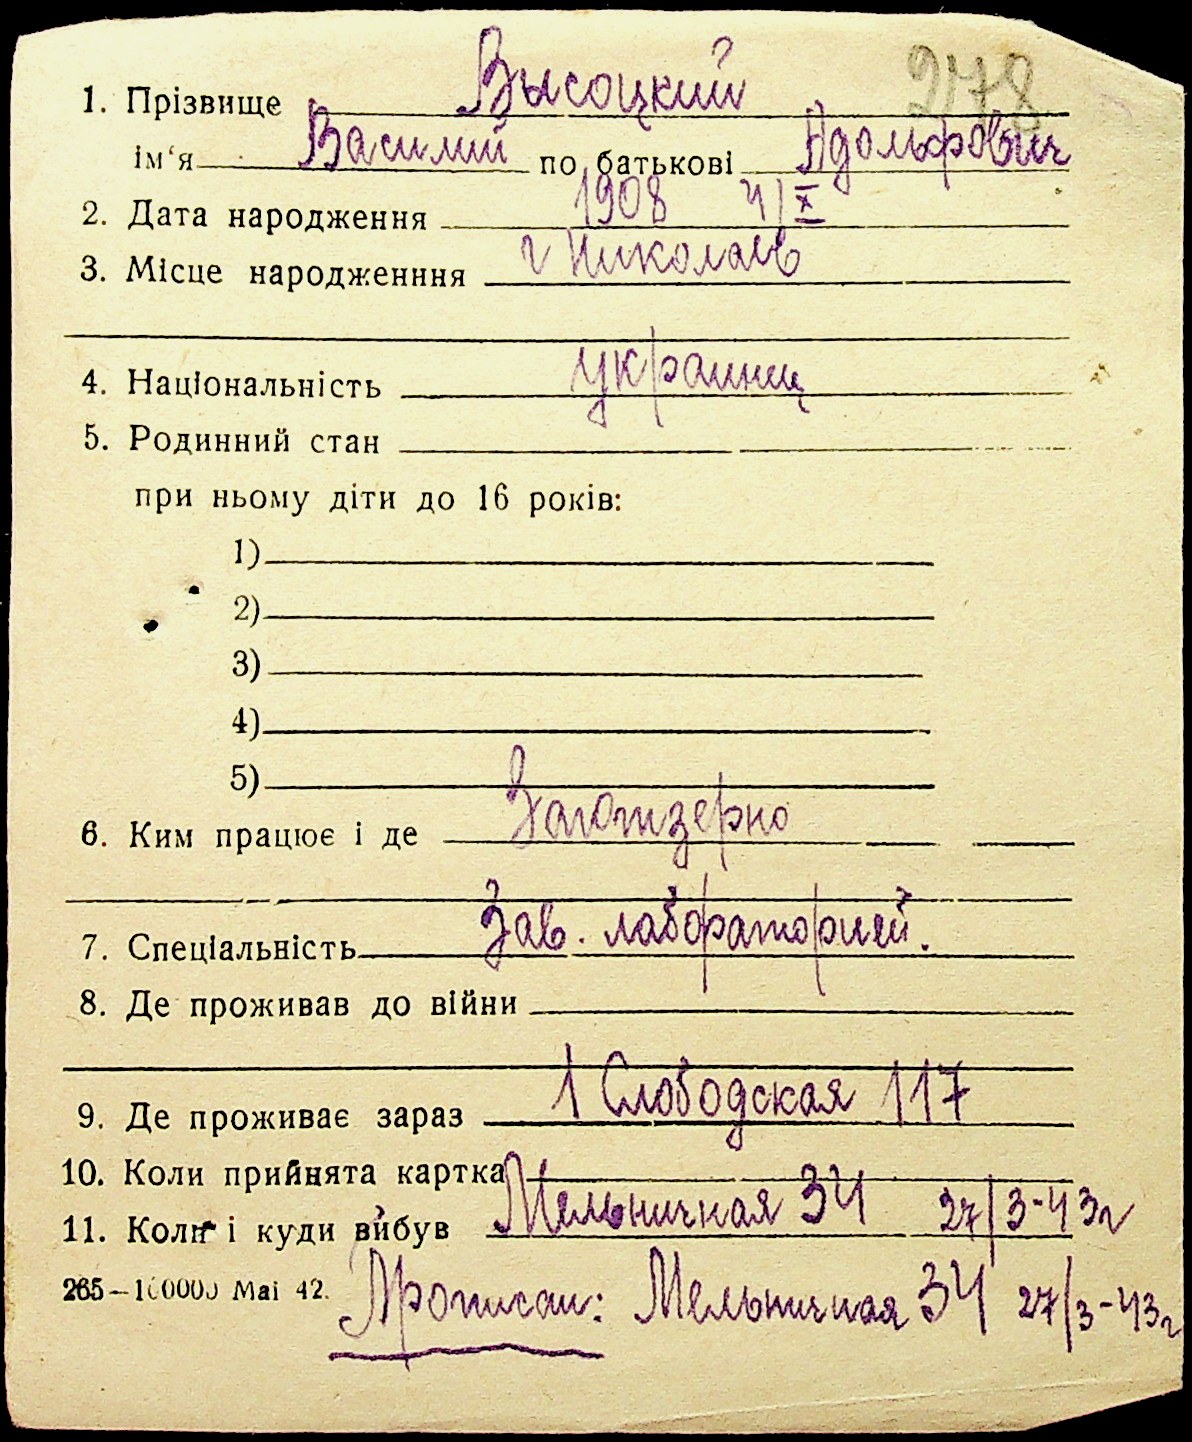 278
1. Прізвище Высоцкий
ім'я Василий по батькові Адольфович
2. Дата народження 1908 4/X
3. Місце народженння г Николаев
4. Національність украинец
5. Родинний стан
при ньому діти до 16 років:
1)
2)
3)
4)
5)
6. Ким працює і де Заготзерно
7. Спеціальність Зав. лабораторией.
8. Де проживав до війни
9. Де проживає зараз 1 Слободская 117
10. Коли прийнята картка
11. Коли і куди вибув Мельничная 34 27/3-43г
265—100000 Маі 42. Прописан: Мельничная 34 27/3-43г